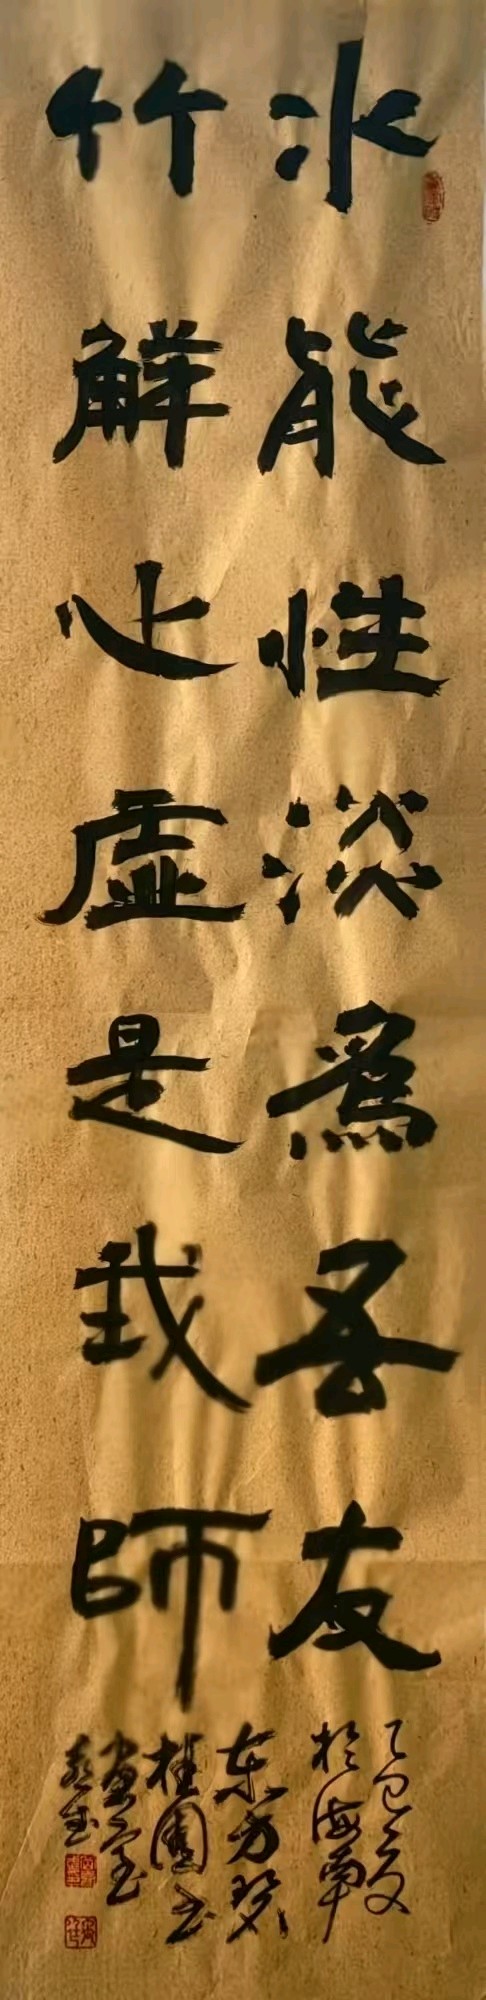 水能性淡為吾友
竹解心虛是我師
乙巳夏
於海南
东方碧
桂園书
画室